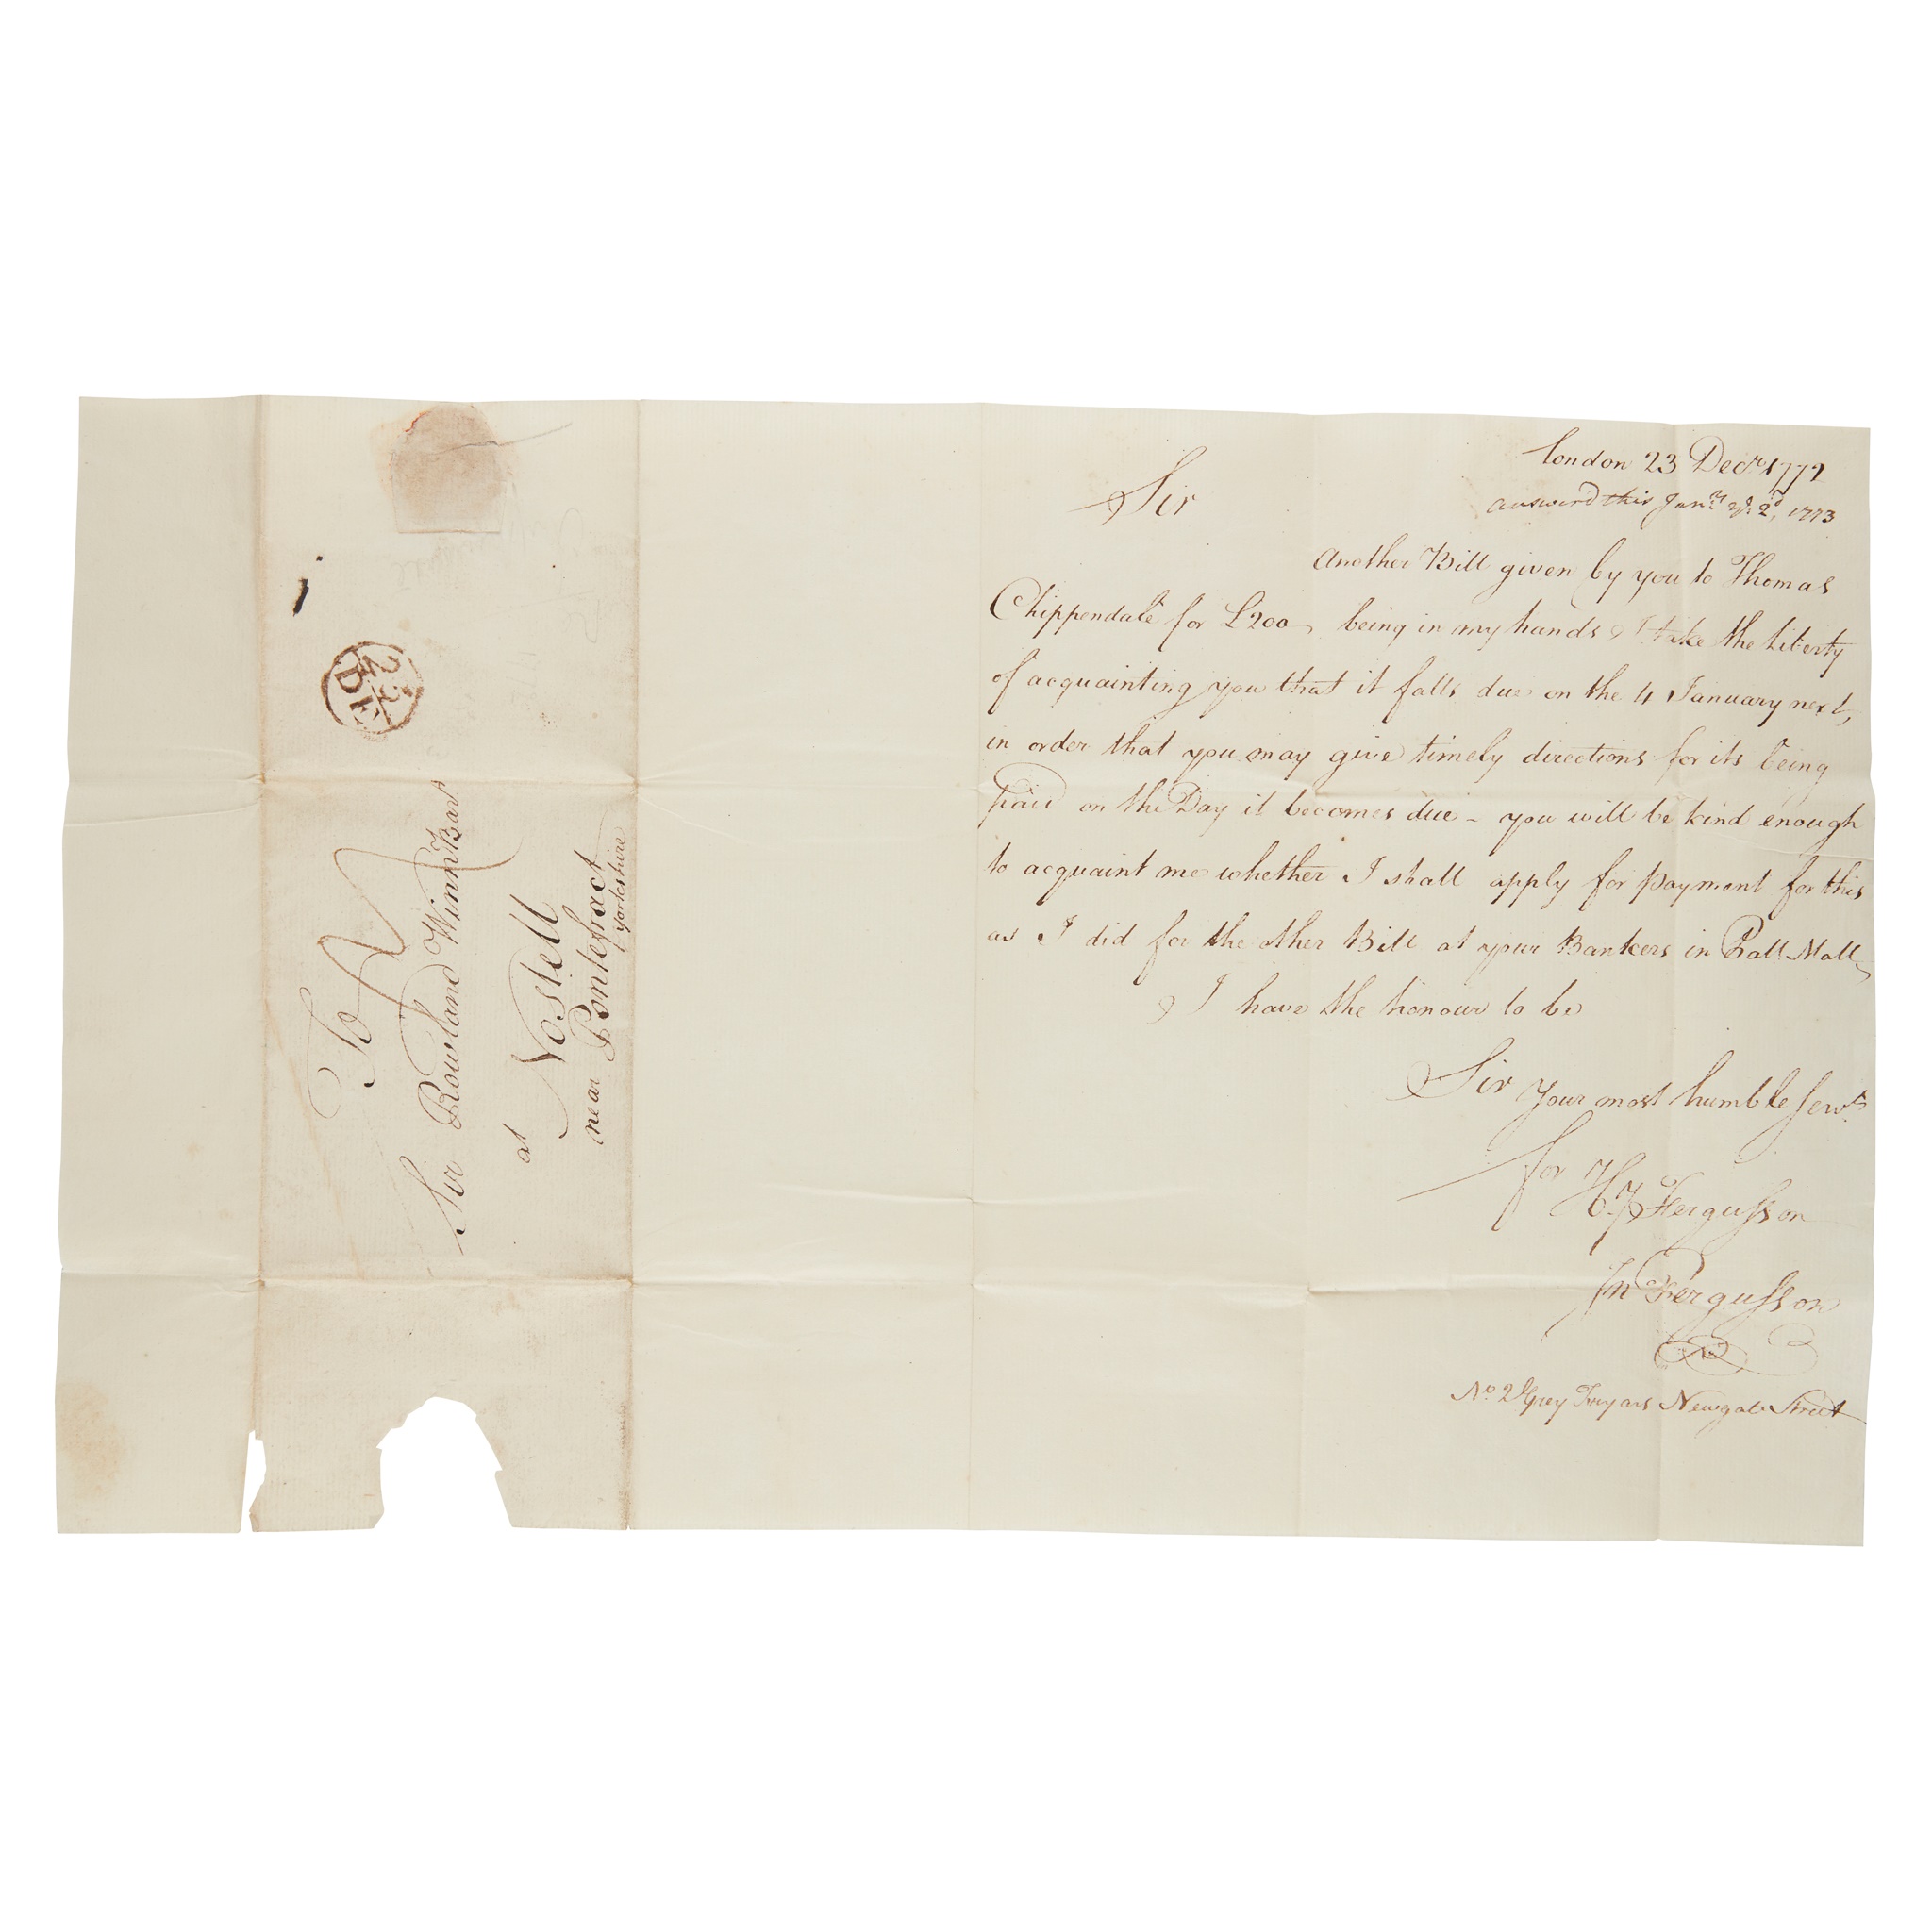 London 23 Decr. 1772
answerd this Jany. ye. 2d, 1773
Sir
Another Bill given by you to Thomas
Chippendale for £200 being in my hands I take the Liberty
of acquainting you that it falls due on the 4 January next,
in order that you may give timely directions for its being
paid on the Day it becomes due - you will be kind enough
to acquaint me whether I shall apply for payment for this
as I did for the other Bill at your Bankers in Pall Mall
I have the honour to be
Sir Your most humble Servt.
for H Fergusson
Jn Fergusson
No. 2 Grey Fryars Newgate Street
To
Sir Rowland Winn Bart
at
Nostell
near Pontefract
Yorkshire
23
DE